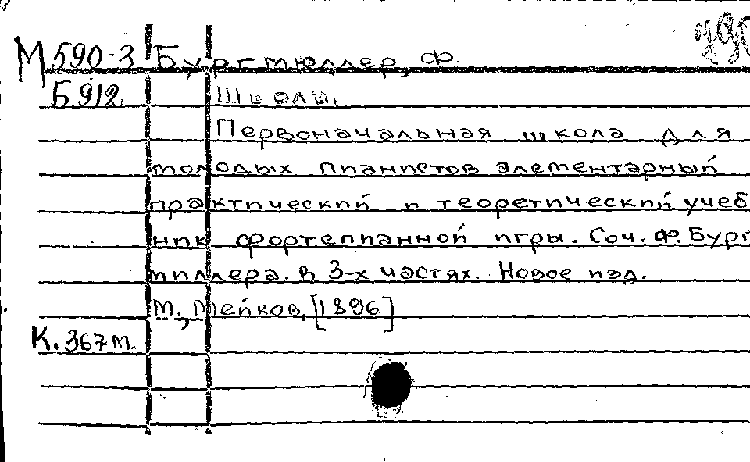 М 590-3 Бургмюллер, Ф.
Б912. Школы.
Первоначальная школа для
молодых пианистов элементарный
практический и теоретический учеб
ник фортепианной игры. Соч. Ф. Бург
миллера. в 3-х частях. Новое изд.
М., Мейков, [1896]
К. 367м.